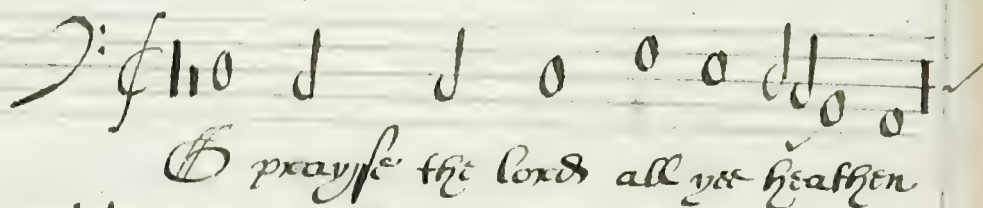 O praysse the lord all yee heathen